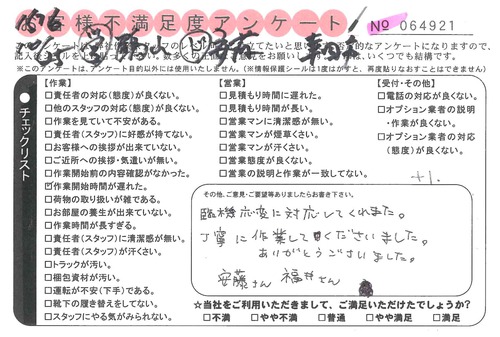 お客様不満足度アンケート
No 064921
※このアンケートは、アンケート目的以外には使用いたしません。(※情報保護シールは1度がすと、再度貼りなおすことはできません)
チェックリスト
【作業】
□責任者の対応(態度)が良くない。
□他のスタッフの対応(態度)が良くない。
□作業を見ていて不安がある。
□責任者(スタッフ)に好感が持てない。
□お客様への挨拶が出来ていない。
□ご近所への挨拶・気遣いが無い。
□作業開始前の内容確認がなかった。
□作業開始時間が遅れた。
□荷物の取り扱いが雑である。
□お部屋の養生が出来ていない。
□作業時間が長すぎる。
□責任者(スタッフ)に清潔感が無い。
□責任者(スタッフ)が汗くさい。
□トラックが汚い。
□梱包資材が汚い。
□運転が不安(下手)である。
□靴下の履き替えをしてない。
□スタッフにやる気がみられない。
【営業】
□見積もり時間に遅れた。
□見積もり時間が長い。
□営業マンに清潔感が無い。
□営業マンが煙草くさい。
□営業マンが汗くさい。
□営業態度が良くない。
□営業の説明と作業が一致してない。
【受付・その他】
□電話の対応が良くない。
□オプション業者の説明
・作業が良くない。
□オプション業者の対応
(態度)が良くない。
その他、ご意見・ご要望等ありましたらお書き下さい。
臨機応変に対応してくれました。
丁寧に作業して下くださいました。
ありがとうございました。
安藤さん 福井さん
☆当社をご利用いただきまして、ご満足いただけたでしょうか?
□不満 □やや不満 □普通 □やや満足 □満足